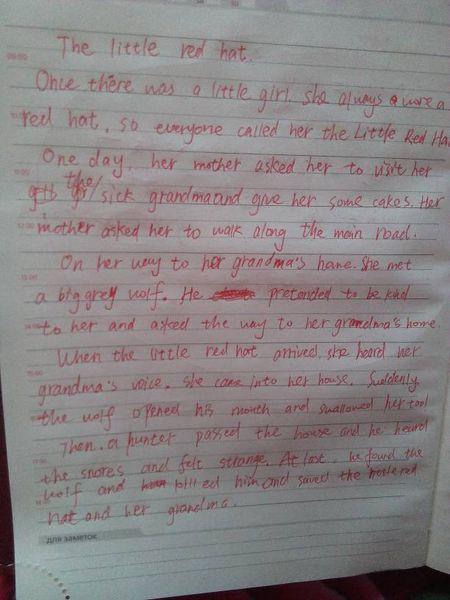 The little red hat.
09:00
Once there was a little girl. she always wore a
red hat, so everyone called her the Little Red Ha
One day, her mother asked her to visit her
11:00
the sick grandma and give her some cakes. Her
12:00 mother asked her to walk along the main road.
On her way to her grandma's home. She met
13:00
a big grey wolf. He pretended to be kind
14:00 to her and asked the way to her grandma's home.
When the little red hat arrived, she heard her
15:00
grandma's voice. she came into her house. Suddenly
the wolf opened his mouth and swallowed her too!
Then. a hunter passed the house and he heard
17:00
the snores and felt strange. At last, he found the
wolf and killed him and saved the little red
hat and her grandma.
для заметок